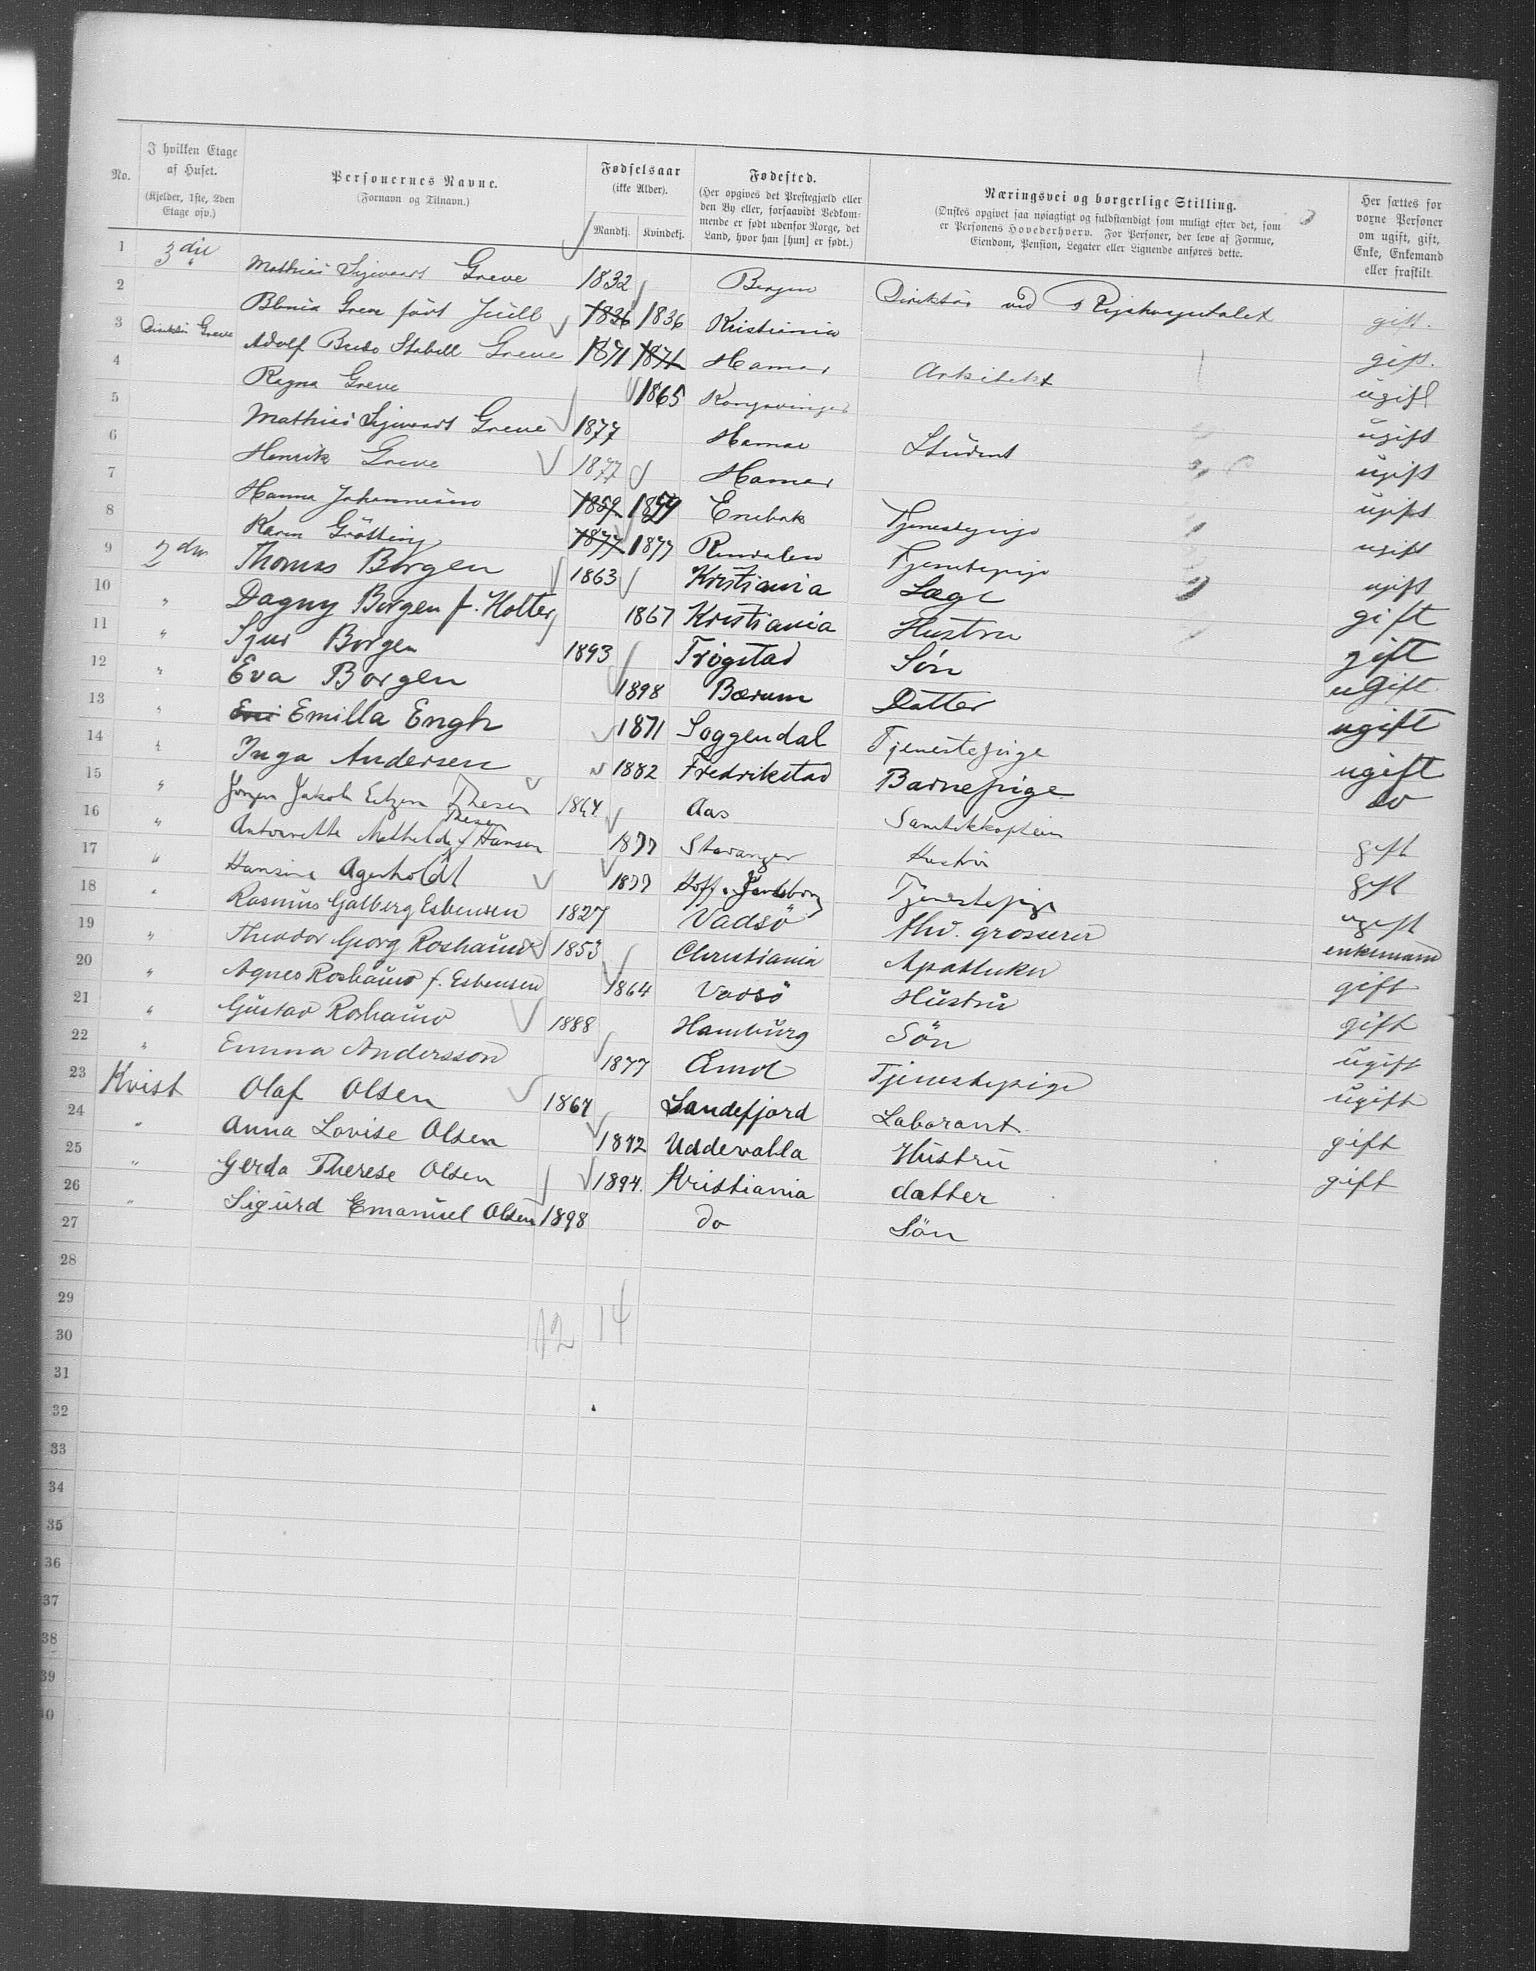 No. | I hvilken Etage af Huset. (Kjelder, 1ste, 2den Etage osv.) | Personernes Navne. (Fornavn og Tilnavn.) | Fødselsaar (ikke Alder). Mandkj. Kvindekj. | Fødested. (Her opgives det Prestegjæld eller den By eller, forsaavidt Vedkommende er født udenfor Norge, det Land, hvor han [hun] er født.) | Næringsvei og borgerlige Stilling. (Ønskes opgivet saa nøiagtigt og fuldstændigt som muligt efter det, som er Personens Hovederhverv. For Personer, der leve af Formue, Eiendom, Pension, Legater eller Lignende anføres dette.) | Her sættes for voxne Personer om ugift, gift, Enke, Enkemand eller fraskilt.
1 3die Mathias Sigwardt Greve 1832 Bergen Direktör ved Rigshospitalet gift.
2 Greve födt Juell 1836 1836 Kristiania gift.
3 Direktör Greve Adolf Bredo Stabell Greve 1871 1871 Hamar Arkitekt ugift
4 Ragna Greve 1865 Kongsvinger ugift
5 Mathias Sigwardt Greve 1877 Hamar Student ugift
6 Henrik Greve 1877 Hamar ugift
7 Hanna Johannesen 1859 1859 Enebak Tjenestepige ugift
8 Karen Grötting 1877 1877 Rendalen Tjenestepige ugift
9 2den Thomas Borgen 1863 Kristiania Læge gift
10 " Dagny Borgen f. Holter 1867 Kristiania Hustru gift
11 " Sjur Borgen 1893 Trøgstad Søn ugift
12 " Eva Borgen 1898 Bærum Datter ugift
13 " Emilla Engh 1871 Soggendal Tjenestepige ugift
14 " Inga Andersen 1882 Fredrikstad Barnepige do
15 " Jørgen Jakob Eitzen Thesen 1864 Aas gift
16 " Antoinette Mathilde Thesen f. Hansen 1877 Stavanger Hustru gift
17 " Hansine Agerholdt 1877 Tjenestepige ugift
18 " Rasmus Galberg Esbensen 1827 Vadsö fhv. grosserer enkemand
19 " Theodor Georg Roshauw 1853 Christiania Apotheker gift
20 " Agnes Roshauw f. Esbensen 1864 Vadsö Hustru gift
21 " Gustav Roshauw 1888 Hamburg Sön ugift
22 " Emma Andersson 1877 Åmol Tjenestepige ugift
23 Kvist Olaf Olsen 1867 Sandefjord Laborant gift
24 " Anna Lovise Olsen 1872 Uddevalla Hustru gift
25 " Gerda Therese Olsen 1894. Kristiania datter
26 " Sigurd Emanuel Olsen 1898 do Sön
27
28
29
12 14
30
31
32
33
34
35
36
37
38
39
40